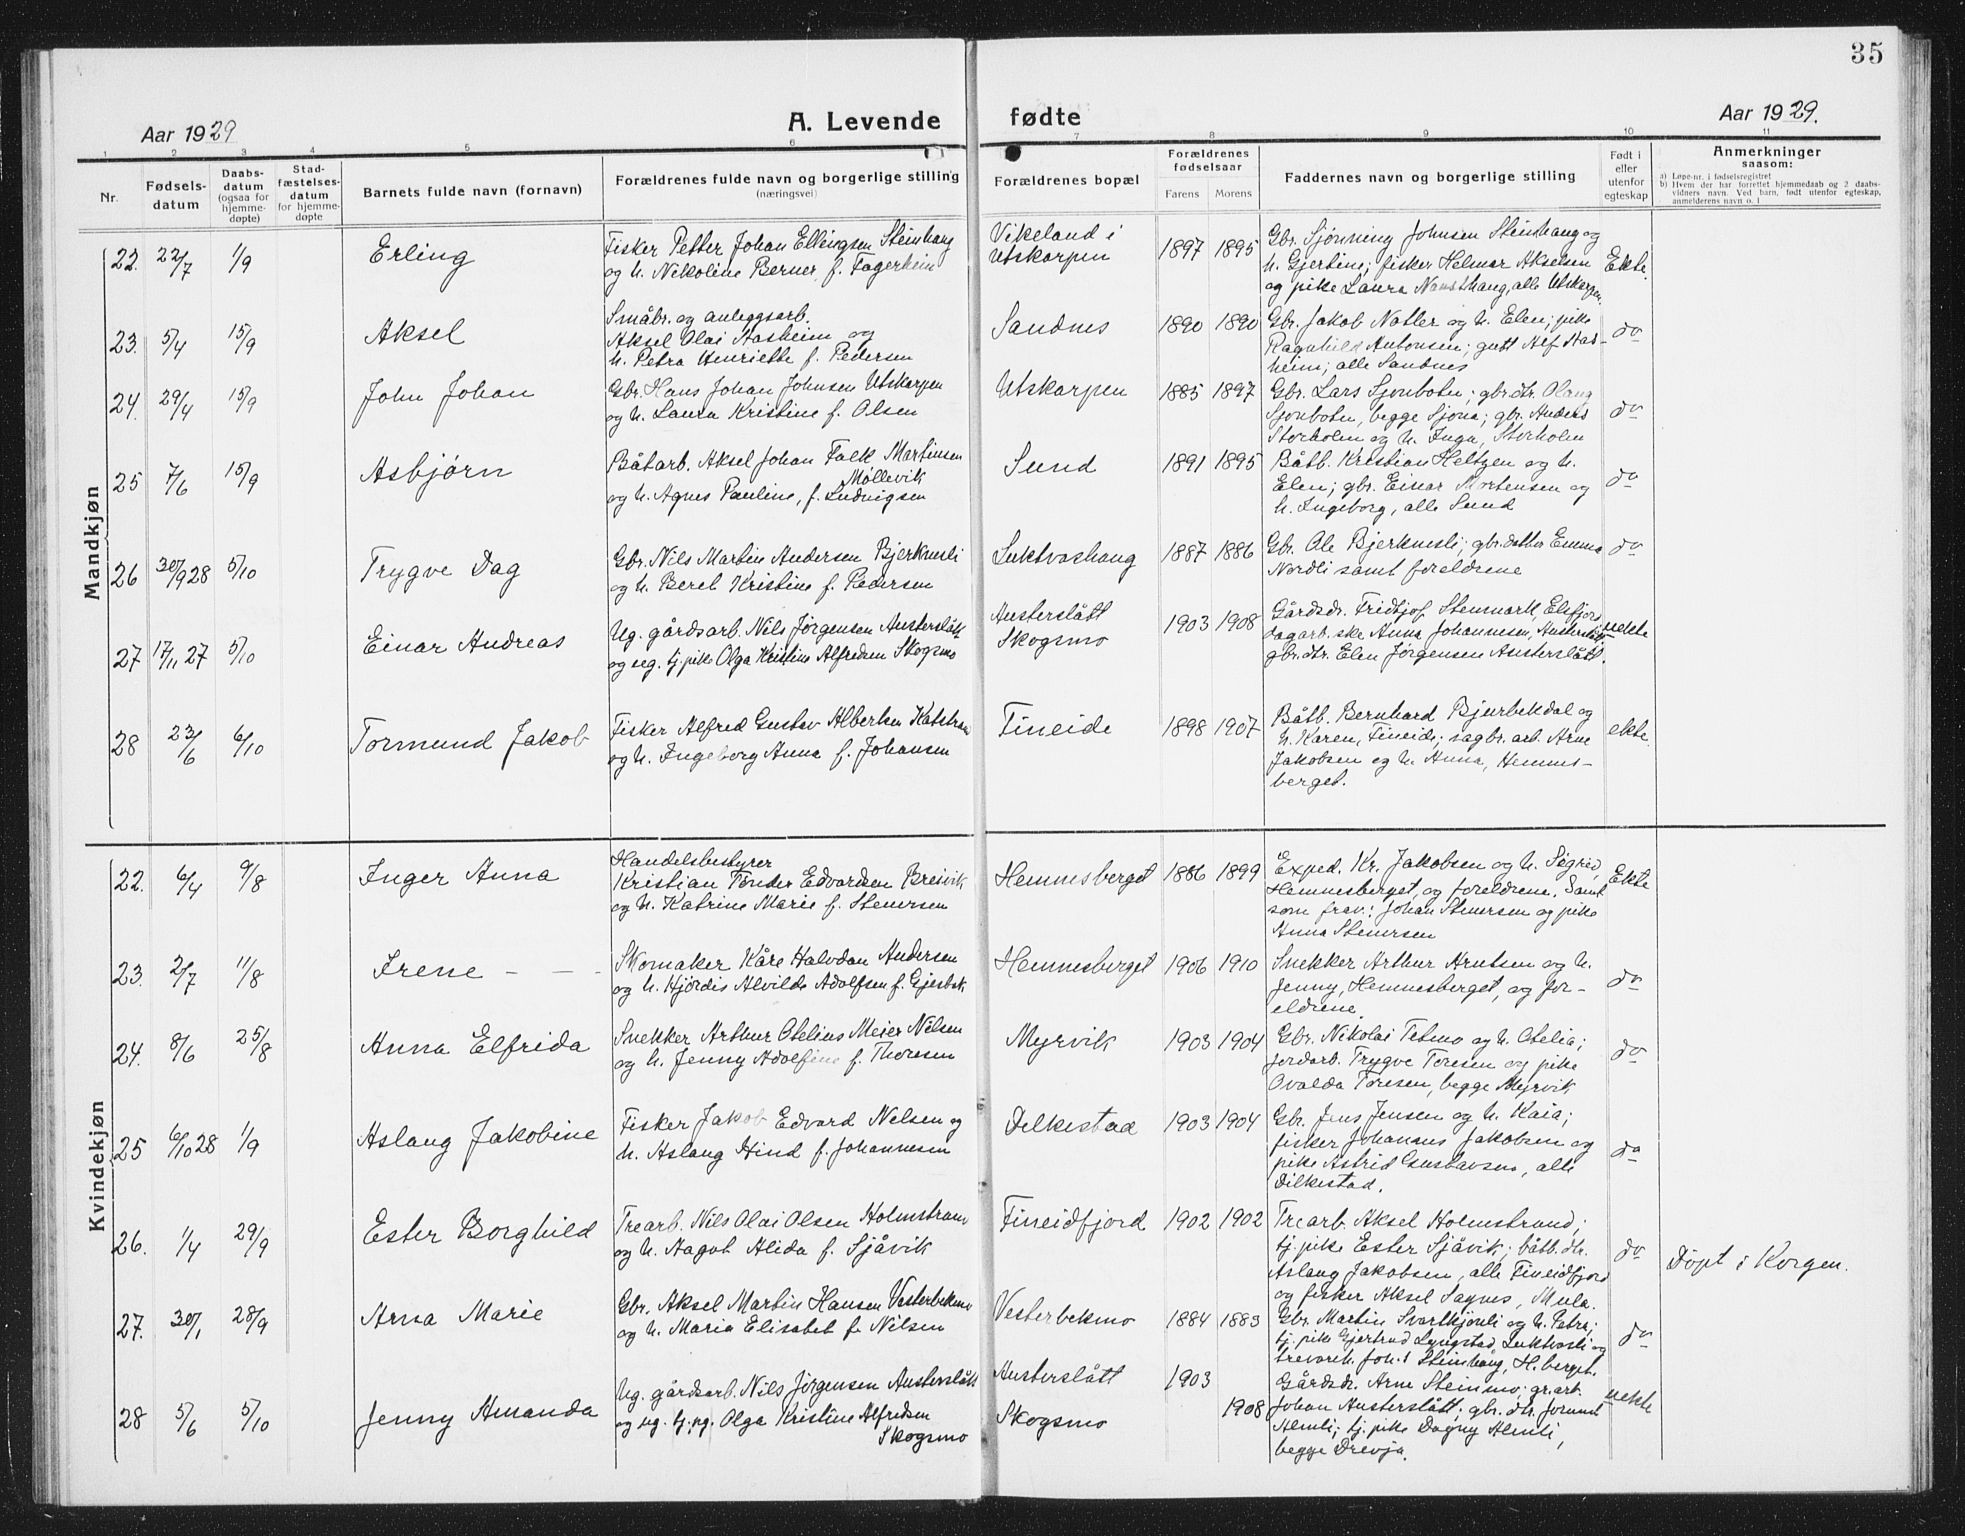 35
Aar 1929
A. Levende fødte
Aar 1929.
1 2 3 4 5 6 7 8 9 10 11
Nr.
Fødsels-datum
Daabs-datum (ogsaa for hjemme-døpte)
Stad-fæstelses-datum for hjemme-døpte
Barnets fulde navn (fornavn)
Forældrenes fulde navn og borgerlige stilling (næringsvei)
Forældrenes bopæl
Forældrenes fødselsaar
Farens Morens
Faddernes navn og borgerlige stilling
Født i eller utenfor egteskap
Anmerkninger saasom:
a) Løpe-nr. i fødselsregistret
b) Hvem der har forrettet hjemmedaab og 2 daabs-
vidners navn. Ved barn, født utenfor egteskap,
anmelderens navn o. l
Mandkjøn
22. 22/7 1/9 Erling
Fisker Petter Johan Ellingsen Steinhaug
og h. Nikoline Berner f. Fagerheim
Vikeland i
Utskarpen
1897 1895
Gbr. Sjønning Johnsen Steinhaug og
h. Gjertine; fisker Helmer Akselsen
og pike Laura Nausthaug, alle Utskarpen.
Ekte.
23. 5/4 15/9 Aksel
Småbr. og anleggsarb.
Aksel Olai Aasheim og
h. Petra Henriette f. Pedersen
Sandnes
1890 1890
Gbr. Jakob Natler og h. Elen; pike
Ragnhild Antonsen; gutt Alf Aas-
heim; alle Sandnes
do
24. 29/4 15/9 John Johan
Gbr. Hans Johan Johnsen Utskarpen
og h. Laura Kristine f. Olsen
Utskarpen
1885 1897
Gbr. Lars Sjonboten; gbr.dtr. Olaug
Sjonboten, begge Sjona; gbr. Anders
Storholen og h. Inga, Storholen
do
25 7/6 15/9 Asbjørn
Båtarb. Aksel Johan Falk Martinsen
Møllevik
og h. Agnes Pauline, f. Ludvigsen
Sund
1891 1895
Båtb. Kristian Heltzen og h.
Elen; gbr. Einar Mortensen og
h. Ingeborg, alle Sund
do
26 30/9 28 5/10 Trygve Dag
Gbr. Nils Martin Andersen Bjerknesli
og h. Beret Kristine f. Pedersen
Luktvashaug
1887 1886
Gbr. Ole Bjerknesli; gbr.datter Emma
Nordli samt foreldrene
do
27 17/11 27 5/10 Einar Andreas
Ug. gårdsarb. Nils Jørgensen Austerslått
og ug. tj. pike Olga Kristine Alfredsen Skogsmo
Austerslått
Skogsmo
1903 1908
Gårdsdr. Fridtjof Stenmark, Elsfjord
dagarb. ske Anna Johannesen, Austerslått
gbr. dtr. Elen Jørgensen Austerslått.
uekte
28 23/6 6/10 Tormund Jakob
Fisker Alfred Gustav Albertsen
og h. Ingeborg Anna f. Johansen
Fineide
1898 1907
Båtb. Bernhard Bjurbekdal og
h. Karen, Fineide; sagbr. arb. Arne
Jakobsen og h. Anna, Hemnes-
berget.
ekte
Kvindekjøn
22. 6/4 9/8 Inger Anna
Handelsbestyrer
Kristian Tønder Edvardsen Breivik
og h. Katrine Marie f. Stenersen
Hemnesberget
1886 1899
Exped. Kr. Jakobsen og h. Sigrid,
Hemnesberget, og foreldrene. Samt
som frav.: Johan Stenersen og pike
Anna Stenersen
Ekte
23. 2/7 11/8 Irene - - -
Skomaker Kåre Halvdan Andersen
og h. Hjördis Alvilde Adolfsen f. Gjesbak
Hemnesberget
1906 1910
Snekker Arthur Arntsen og h.
Jenny, Hemnesberget, og for-
eldrene.
do
24. 8/6 25/8 Anna Elfrida
Snekker Arthur Otelius Meier Nilsen
og h. Jenny Adolfine f. Thoresen
Myrvik
1903 1904
Gbr. Nikolai Tetmo og h. Otelia;
jordarb. Trygve Toresen og pike
Ovalda Toresen, begge Myrvik
do
25 6/10 28 1/9 Aslaug Jakobine
Fisker Jakob Edvard Nelsen og
h. Aslaug Hind f. Johannesen
Dilkestad
1903 1904
Gbr. Jens Jensen og h. Kaia;
fisker Johannes Jakobsen og
pike Astrid Gustavsen, alle
Dilkestad.
do
26. 1/4 29/9 Ester Borghild
Trearb. Nils Olai Olsen Holmstrand
og h. Aagot Alida f. Sjåvik
Fineidfjord
1902 1902
Trearb. Aksel Holmstrand;
tj. pike Ester Sjåvik; båtb. dtr.
Aslaug Jakobsen, alle Fineidfjord
og fisker Aksel Sagnes, Mula.
do
Döpt i Korgen.
27. 30/1 28/9 Arna Marie
Gbr. Aksel Martin Hansen Vesterbekmo
og h. Maria Elisabet f. Nilsen
Vesterbekmo
1884 1883
Gbr. Martin Svartkjønli og h. Petra;
tj. pike Gjertrud Lyngstad, Luktvasli og
trevareh. Joh. Steinhaug, H.berget.
do
28 5/6 5/10 Jenny Amanda
Ug. gårdsarb. Nils Jörgensen Austerslått
og ug. tj. pg. Olga Kristine Alfredsen
Skogsmo
Austerslått
Skogsmo
1903
1908
Gårdsdr. Arne Steinmo; gr.arb.
Johan Austerslått; gbr. dtr. Jorunn
Almli; tj. pike Dagny Almli,
begge Drevja.
uekte